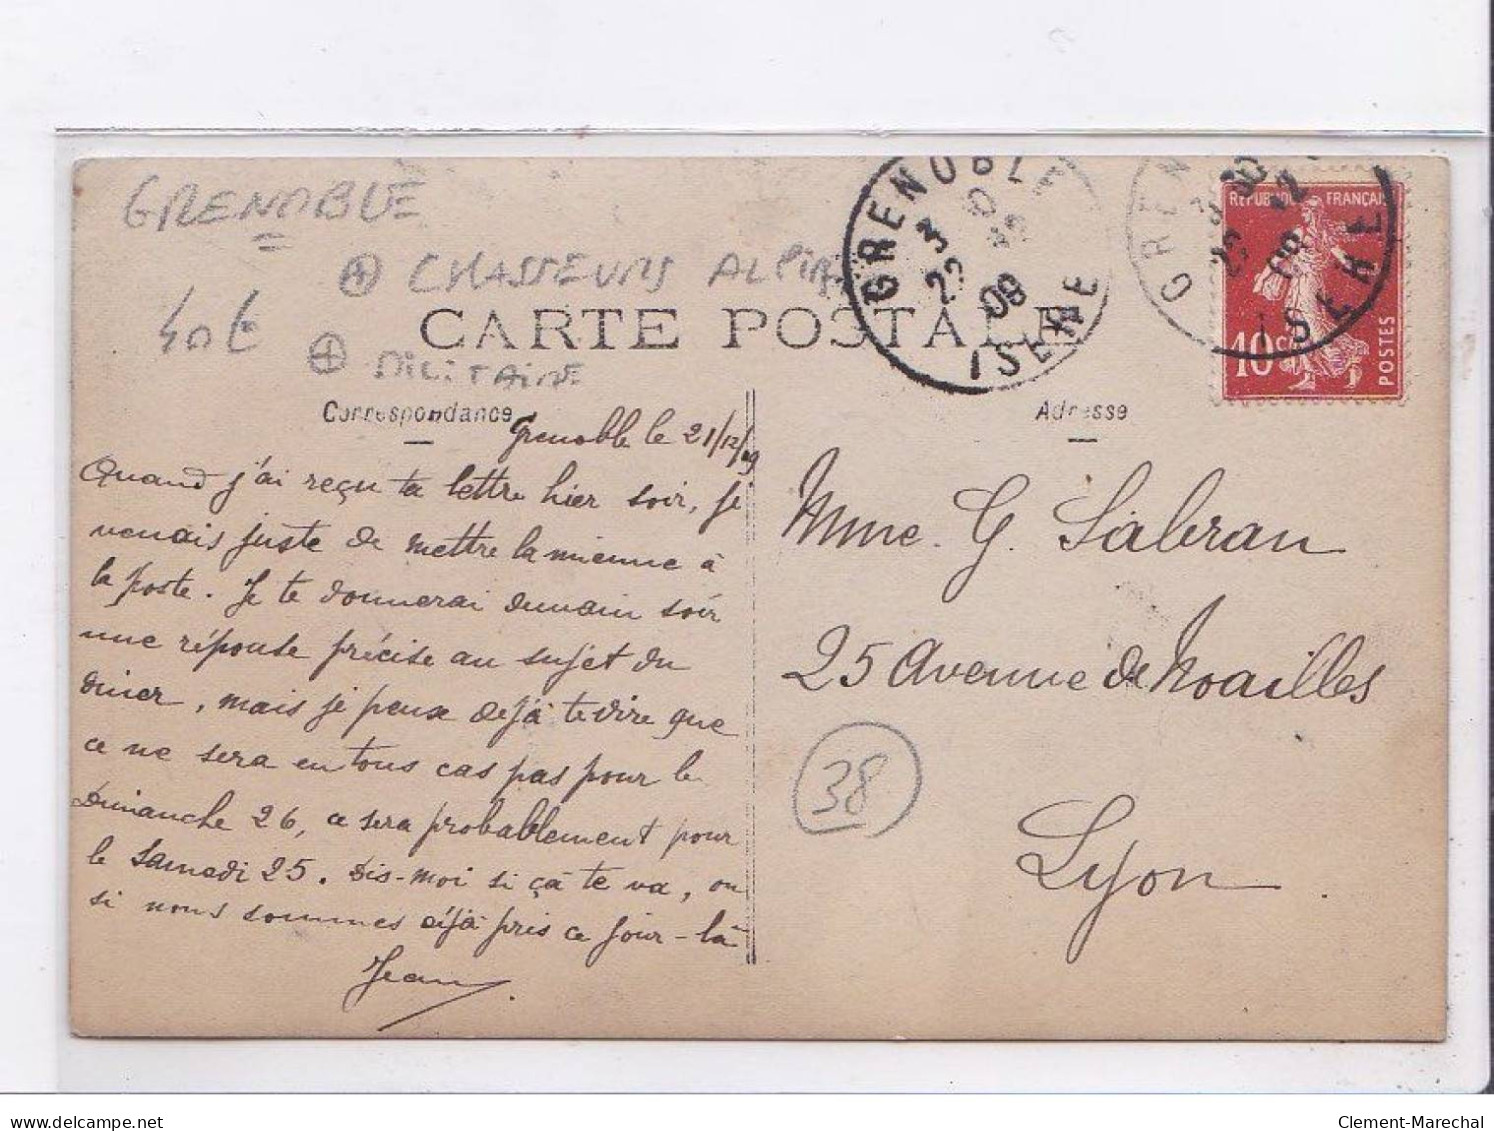 GRENOBLE
⊕ CHASSEURS ALPIN
40€
CARTE POSTALE
⊕ MILITAIRE
GRENOBLE
3
22
09
ISERE
GREN
22
12
09
ISERE
REPUBLIQUE FRANÇAISE
10 c
POSTES
Correspondance
Adresse
Grenoble le 21/12/09
Quand j'ai reçu ta lettre hier soir, je
venais juste de mettre la mienne à
la poste. Je te donnerai demain soir
une réponse précise au sujet du
diner, mais je peux déjà te dire que
ce ne sera en tous cas pas pour le
Dimanche 26, ce sera probablement pour
le Samedi 25. Dis-moi si çà te va, ou
si nous sommes déjà pris ce jour-là
Jean
Mme. G. Sabran
25 Avenue de Noailles
38
Lyon
delcampe.net
Clement-Marechal